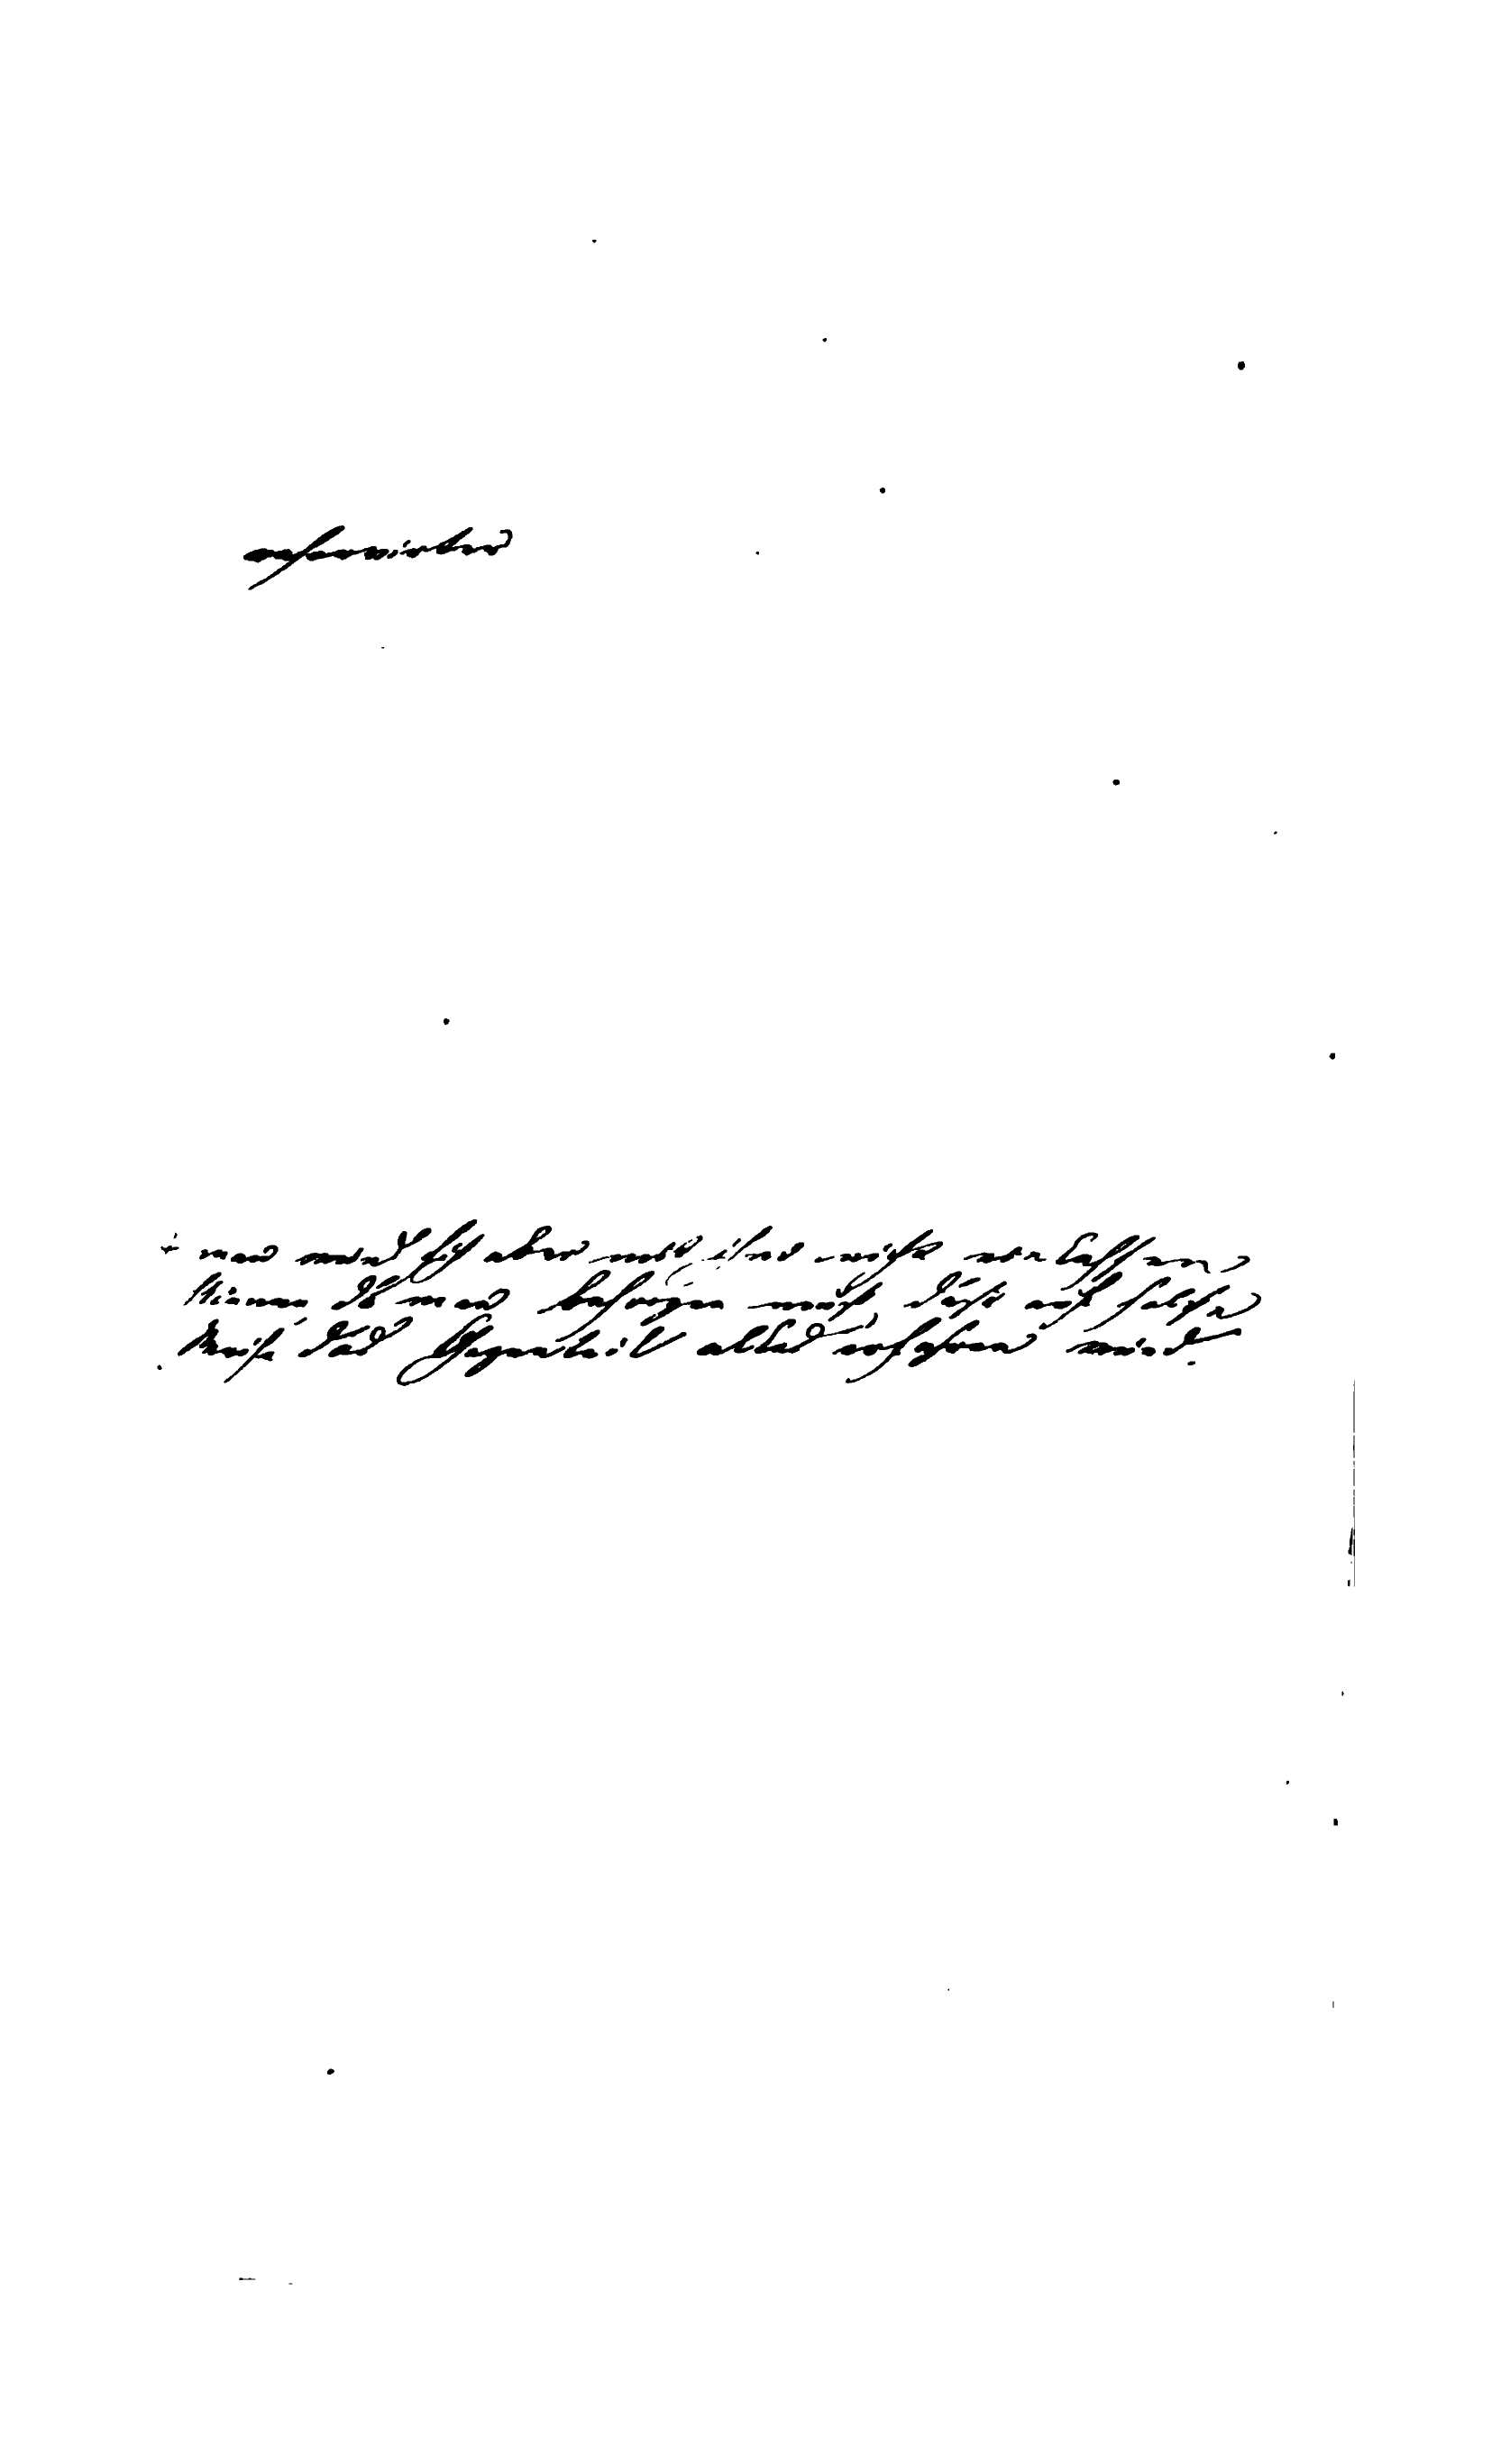 + man wird sich aber mit ihr nicht ver lassen,
können da man besorgen muß, daß auf solche
Weise das Gegentheil alles erfahren wird.